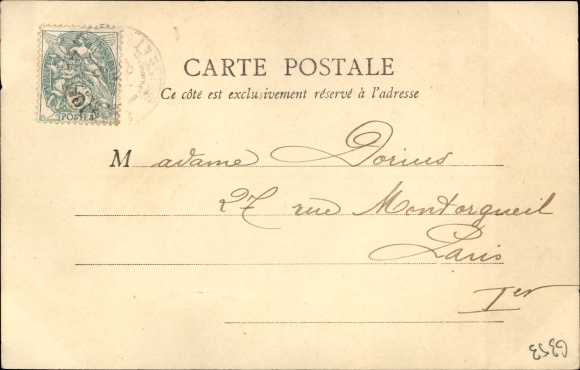 POSTES
CARTE POSTALE
Ce côté est exclusivement réservé à l'adresse
Madame Dorius
27 rue Montorgueil
Paris
Ier